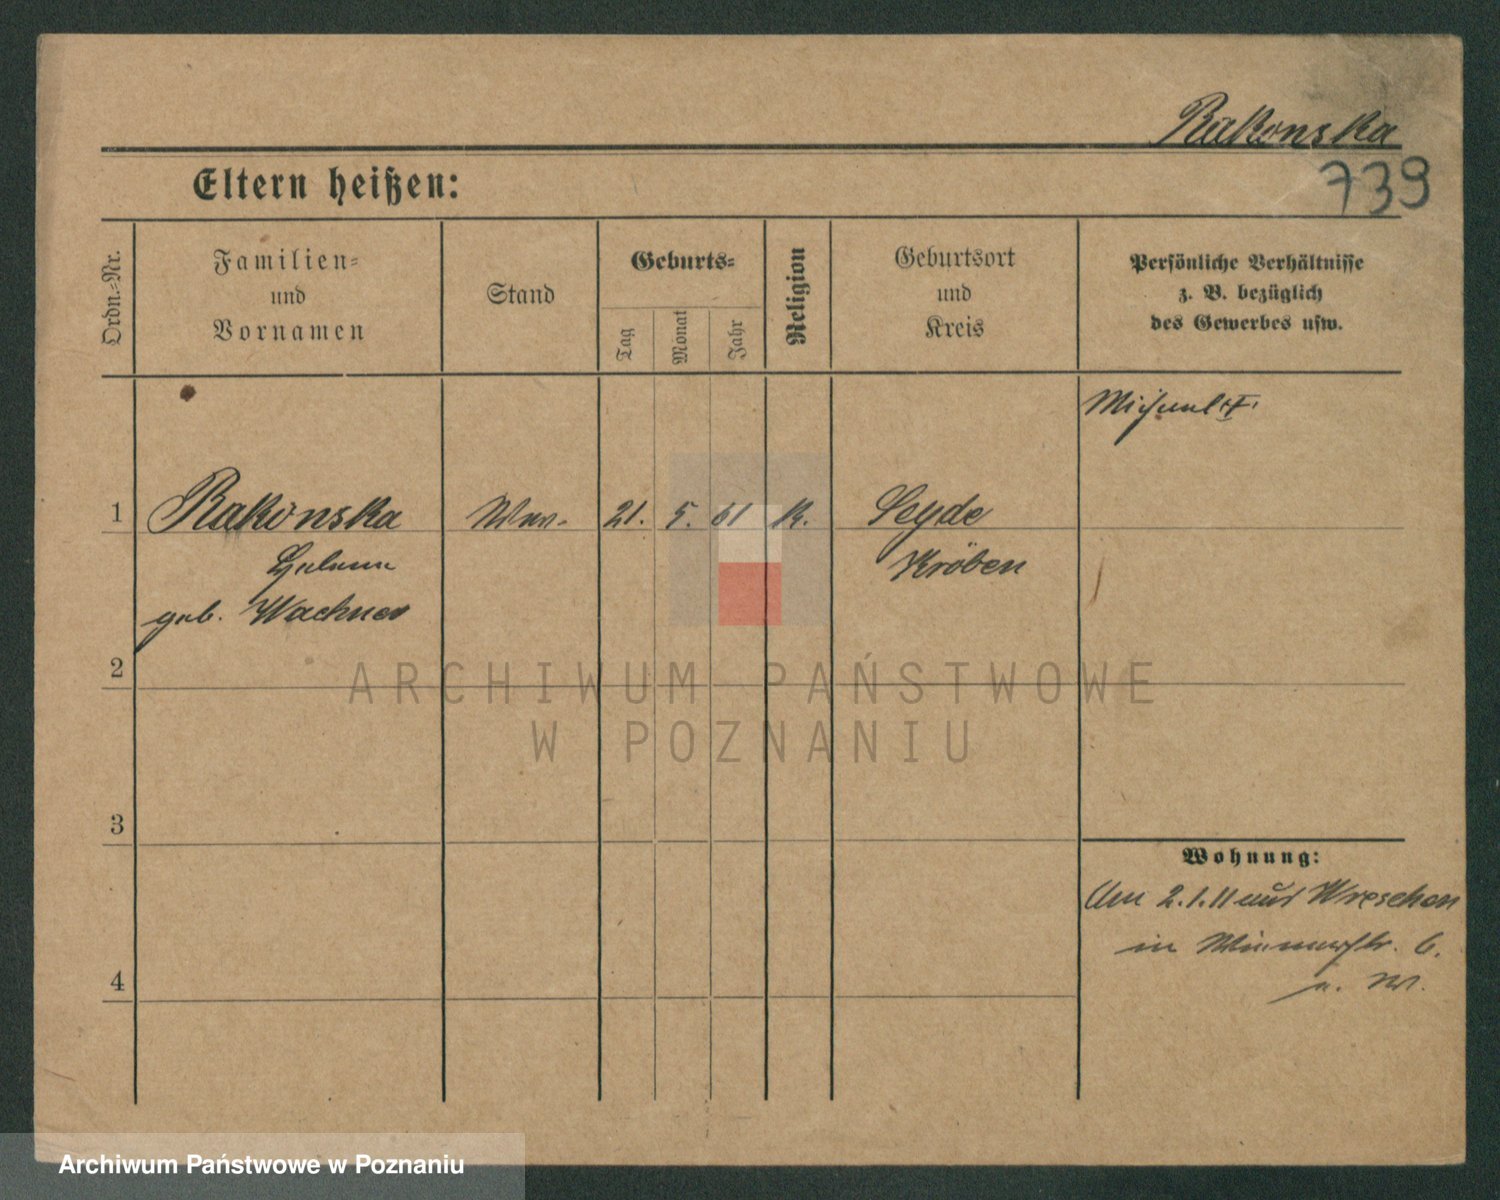 Rakonska
739
Eltern heißen:
Ordn.-Nr.
Familien-
und
Vornamen
Stand
Geburts-
Tag
Monat
Jahr
Religion
Geburtsort
und
Kreis
Persönliche Verhältnisse
z. B. bezüglich
des Gewerbes usw.
1
Rakonska
Helena
geb. Wachner
21. 5. 61
K.
Seyde
Kröben
2
3
4
Wohnung:
Am 2.1.11 aus Wreschen
in
6.
ARCHIWUM PAŃSTWOWE
W POZNANIU
Archiwum Państwowe w Poznaniu